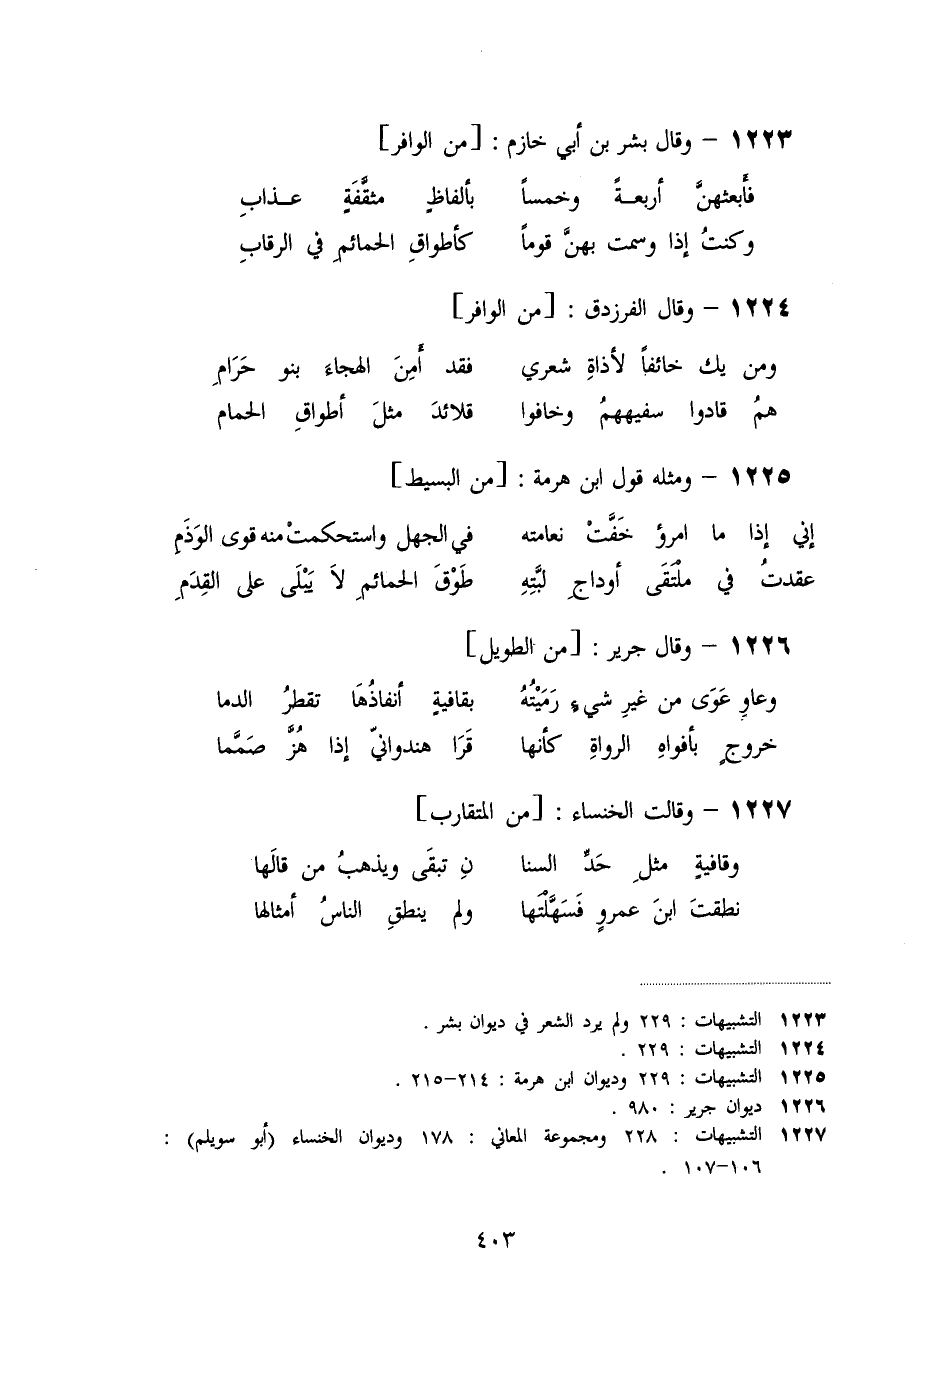 ١٢٢٣ – وقال بشر بن أبي خازم : [من الوافر]
فأَبعثهنَّ أربعــةً وخمساً بألفاظٍ مثقَّفَةٍ عــذابِ
وكنتُ إذا وسمت بهنَّ قوماً كأطواقِ الحمائمِ في الرقابِ
١٢٢٤ – وقال الفرزدق : [من الوافر]
ومن يك خائفاً لأذاةِ شعري فقد أَمِنَ الهجاءَ بنو حَرَامِ
همُ قادوا سفيههمُ وخافوا قلائدَ مثلَ أطواقِ الحمام
١٢٢٥ – ومثله قول ابن هرمة : [من البسيط]
إني إذا ما امرؤ خَفَّتْ نعامته في الجهل واستحكمتْ منه قوى الوَذَمِ
عقدتُ في ملْتَقَى أوداجِ لبَّتِهِ طَوْقَ الحمائمِ لاَ يَبْلَى على القِدَمِ
١٢٢٦ – وقال جرير : [من الطويل]
وعاوٍ عَوَى من غيرِ شيءٍ رَمَيْتُهُ بقافيةٍ أنفاذُهَا تقطرُ الدما
خروجٍ بأفواهِ الرواةِ كأنها قَرَا هندوانيّ إذا هُزَّ صَمَّما
١٢٢٧ – وقالت الخنساء : [من المتقارب]
وقافيةٍ مثلِ حَدِّ السنا نِ تبقَى ويذهبُ من قالَها
نطقتَ ابنَ عمرٍو فَسَهَّلْتَها ولم ينطقِ الناسُ أمثالها
١٢٢٣ التشبيهات : ٢٢٩ ولم يرد الشعر في ديوان بشر .
١٢٢٤ التشبيهات : ٢٢٩ .
١٢٢٥ التشبيهات : ٢٢٩ وديوان ابن هرمة : ٢١٤–٢١٥ .
١٢٢٦ ديوان جرير : ٩٨٠ .
١٢٢٧ التشبيهات : ٢٢٨ ومجموعة المعاني : ١٧٨ وديوان الخنساء (أبو سويلم) :
١٠٦–١٠٧ .
٤٠٣